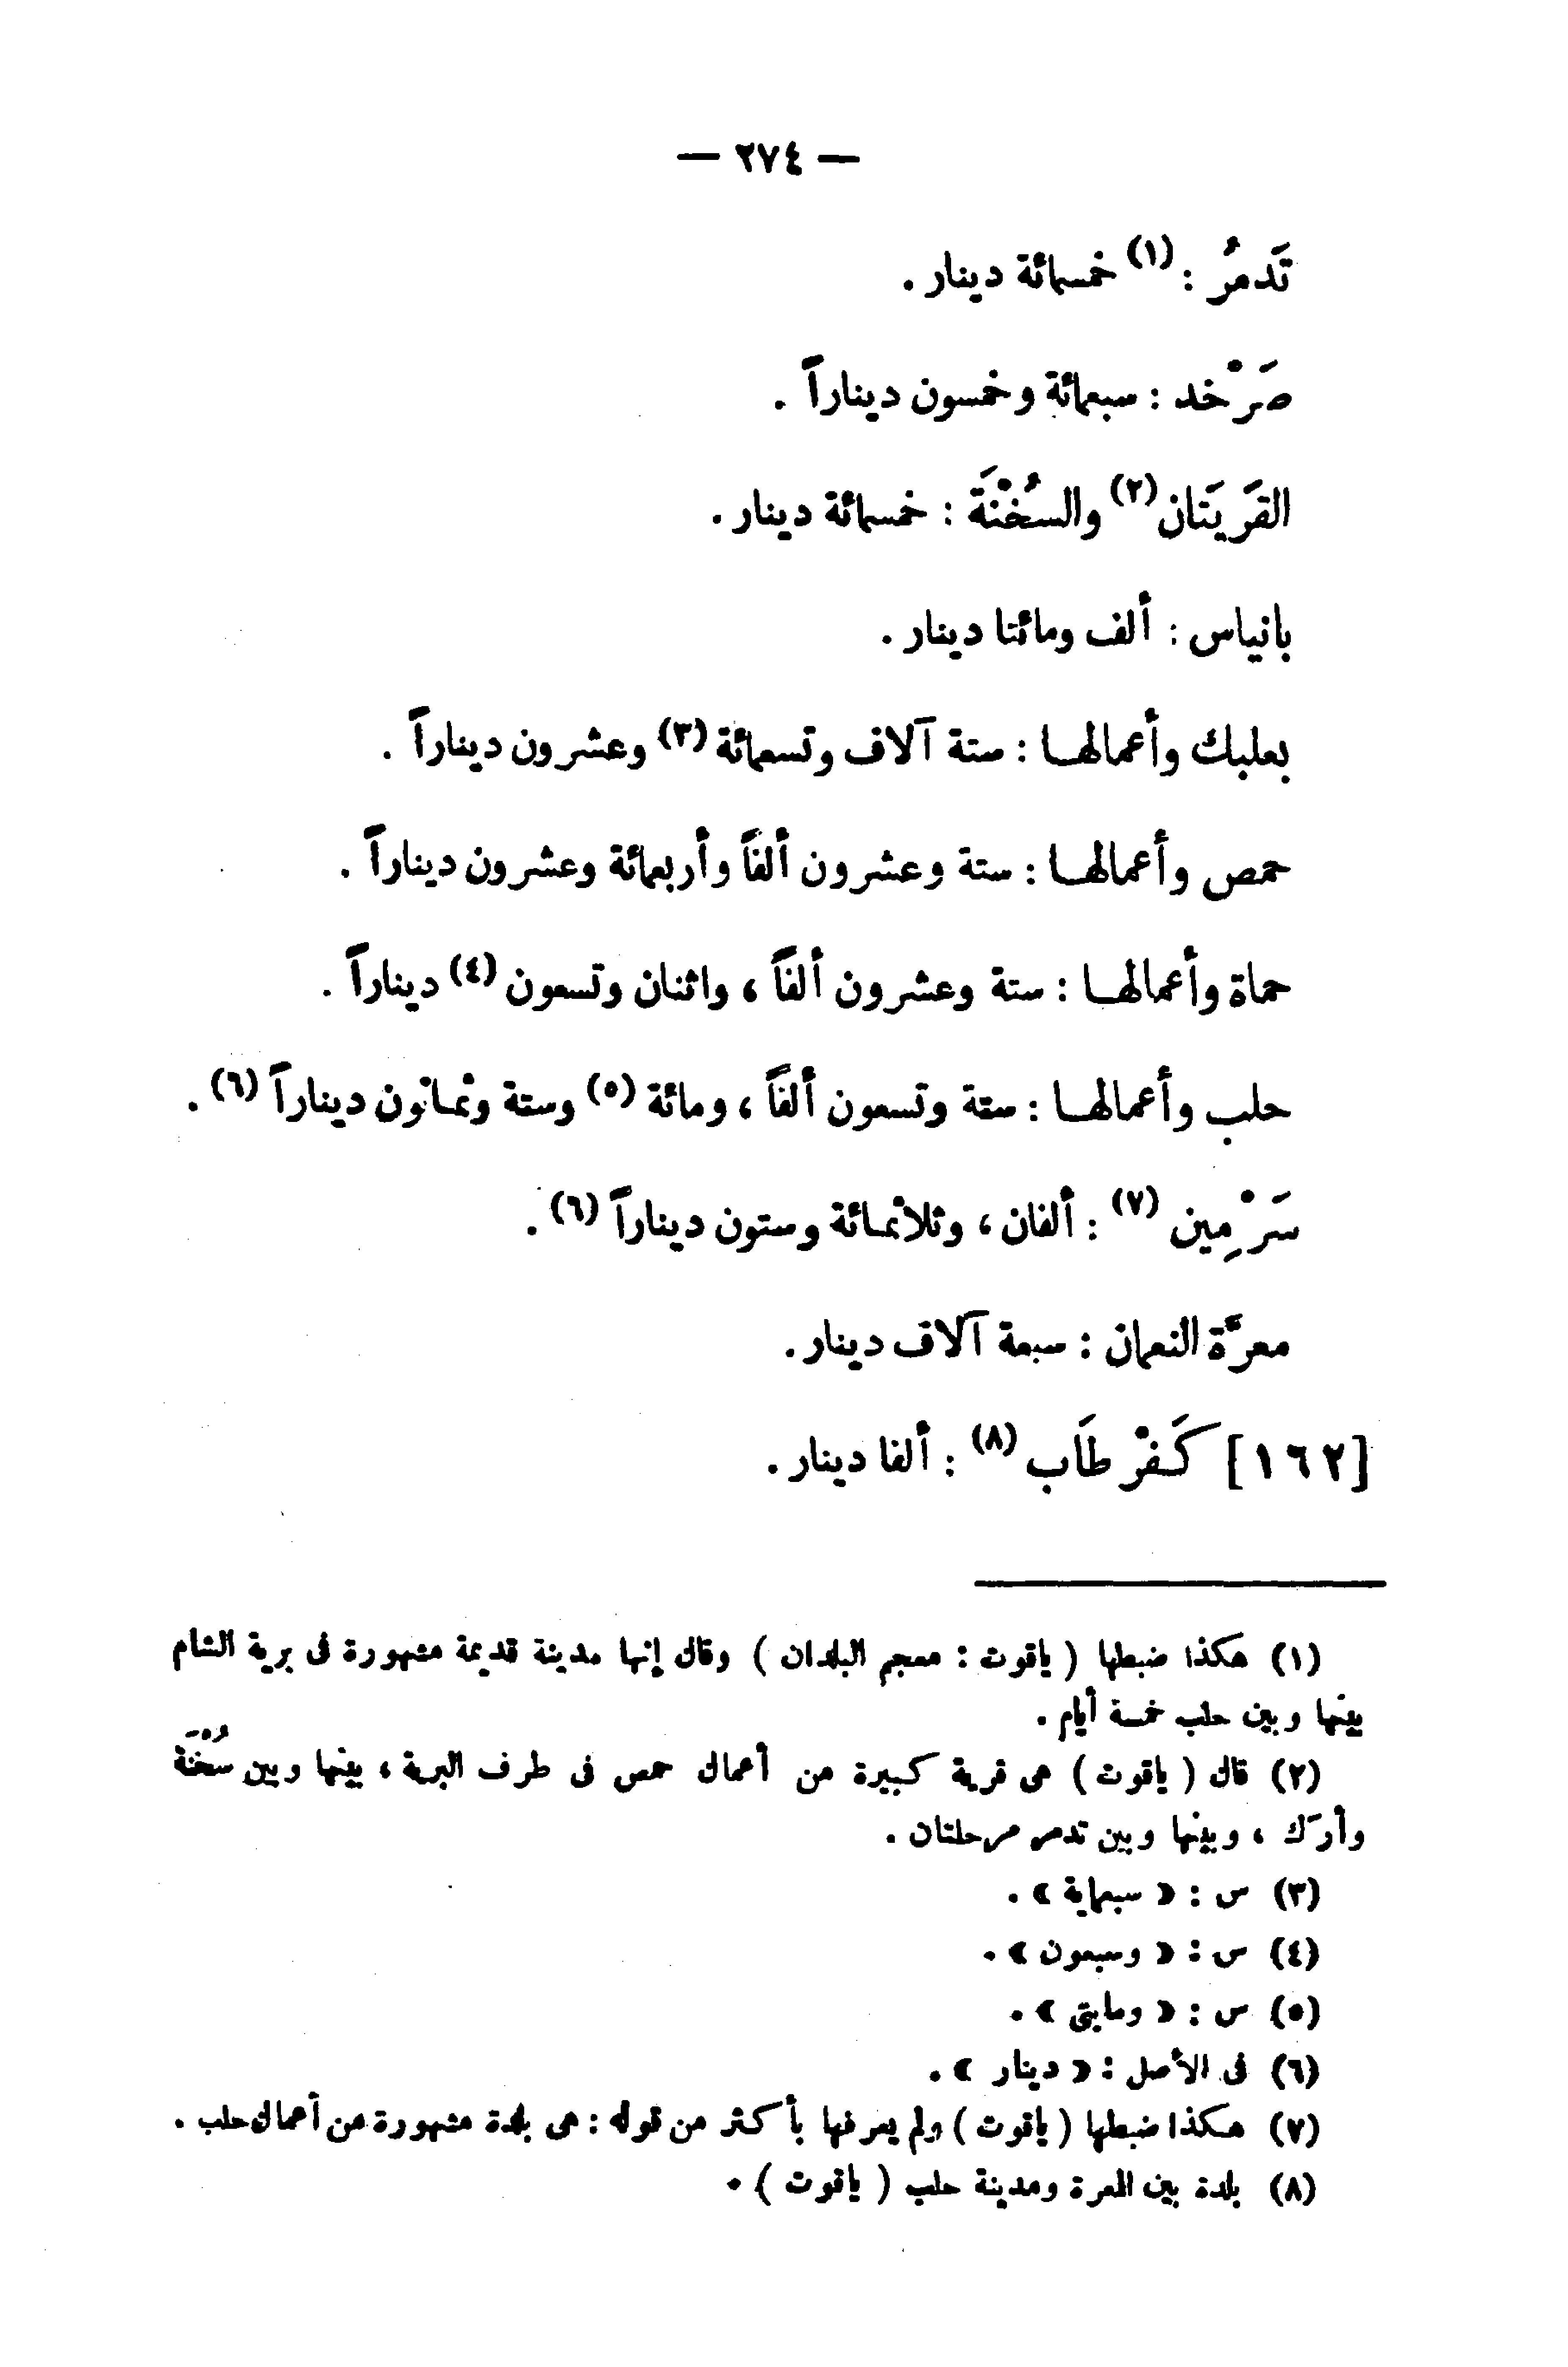 — ٢٧٤ —
تَدمُر : (١) خمسمائة دينار .
صَرْخد : سبعمائة وخمسون ديناراً .
القَريَتان (٢) والسُخْنَة : خمسمائة دينار .
بانياس : ألف ومائتا دينار .
بعلبك وأعمالها : ستة آلاف وتسعمائة (٣) وعشرون ديناراً .
حمص وأعمالها : ستة وعشرون ألفاً وأربعمائة وعشرون ديناراً .
حماة وأعمالها : ستة وعشرون ألفاً ، واثنان وتسعون (٤) ديناراً .
حلب وأعمالها : ستة وتسعون ألفاً ، ومائة (٥) وستة وثمانون ديناراً (٦) .
سَرْمِين (٧) : ألفان ، وثلاثمائة وستون ديناراً (٦) .
معرَّة النعمان : سبعة آلاف دينار .
[١٦٢] كَفْرطَاب (٨) : ألفا دينار .
(١) هكذا ضبطها ( ياقوت : معجم البلدان ) وقال إنها مدينة قديمة مشهورة فى برية الشام
بينها وبين حلب خمسة أيام .
(٢) قال ( ياقوت ) هى قرية كبيرة من أعمال حمص فى طرف البرية ، بينها وبين سُخْنَة
وأرَك ، وبينها وبين تدمر مرحلتان .
(٣) س : « سبعماية » .
(٤) س : « وسبعون » .
(٥) س : « ومايتى » .
(٦) فى الأصل : « دينار » .
(٧) هكذا ضبطها ( ياقوت ) ولم يعرفها بأكثر من قوله : هى بلدة مشهورة من أعمال حلب .
(٨) بلدة بين المعرة ومدينة حلب ( ياقوت ) .